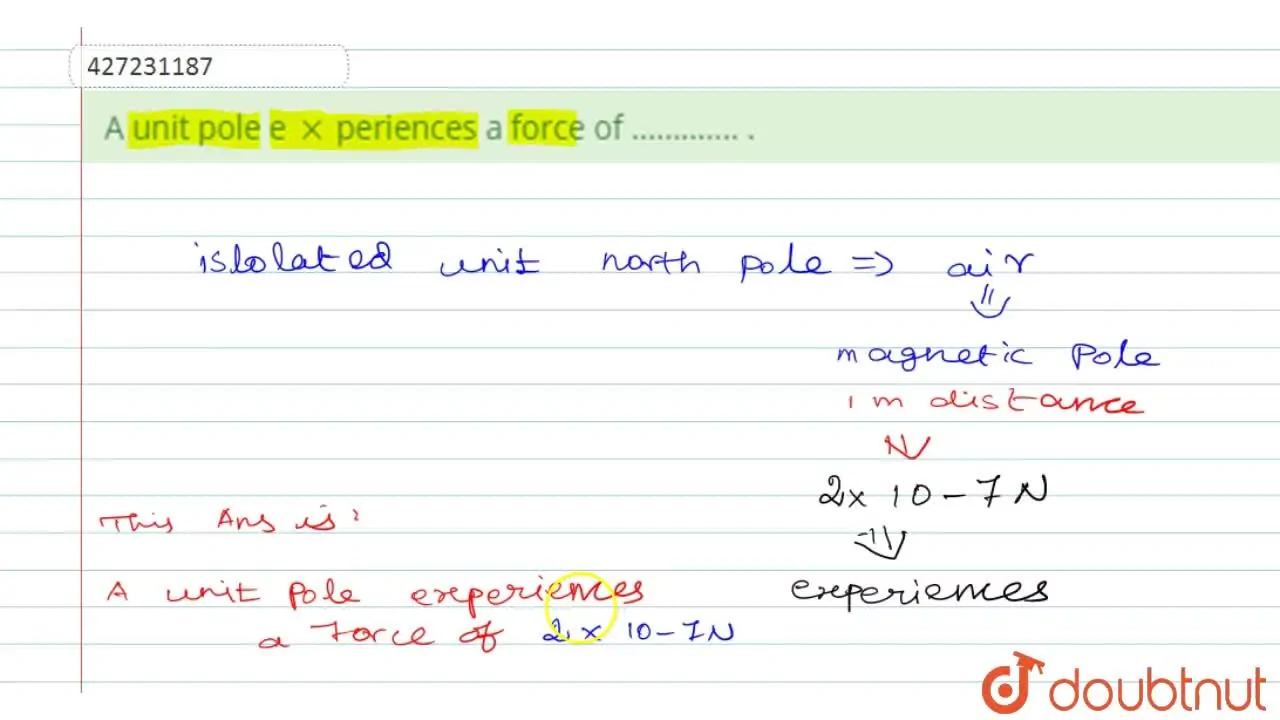 427231187
A unit pole e × periences a force of ............. .
islolated unit north pole => air
magnetic Pole
1 m distance
2x 10-7N
This Ans is:
experiences
A unit Pole experiences
a Force of 2x 10-7N
doubtnut